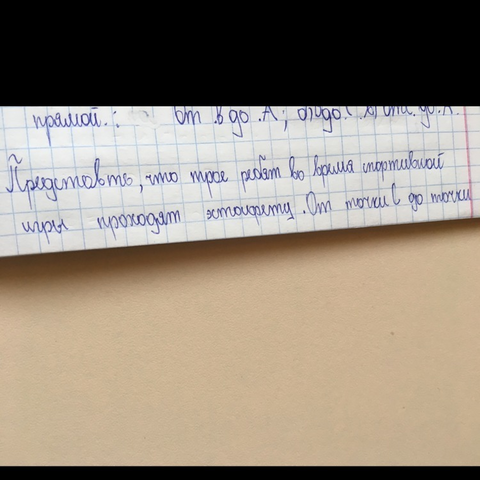 прямой. : от в до А; до
Представте, что трое ребят во время спортивной
игры проходят эстафету. От точки С до точки